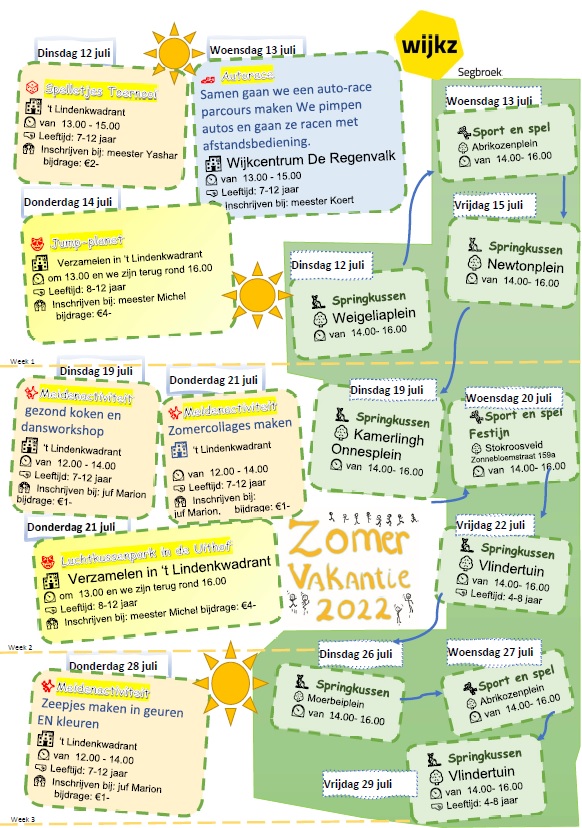 wijkz
Segbroek
Dinsdag 12 juli
Spelletjes Toernooi
't Lindenkwadrant
van 13.00 - 15.00
Leeftijd: 7-12 jaar
Inschrijven bij: meester Yashar
bijdrage: €2-
Woensdag 13 juli
Autorace
Samen gaan we een auto-race
parcours maken We pimpen
autos en gaan ze racen met
afstandsbediening.
Wijkcentrum De Regenvalk
van 13.00 - 15.00
Leeftijd: 7-12 jaar
Inschrijven bij: meester Koert
Woensdag 13 juli
Sport en spel
Abrikozenplein
van 14.00- 16.00
Donderdag 14 juli
Jump-planet
Verzamelen in 't Lindenkwadrant
om 13.00 en we zijn terug rond 16.00
Leeftijd: 8-12 jaar
Inschrijven bij: meester Michel
bijdrage: €4-
Dinsdag 12 juli
Springkussen
Weigeliaplein
van 14.00- 16.00
Vrijdag 15 juli
Springkussen
Newtonplein
van 14.00- 16.00
Week 1
Dinsdag 19 juli
Meidenactiviteit
gezond koken en
dansworkshop
't Lindenkwadrant
van 12.00 - 14.00
Leeftijd: 7-12 jaar
Inschrijven bij: juf Marion
bijdrage: €1-
Donderdag 21 juli
Meidenactiviteit
Zomercollages maken
't Lindenkwadrant
van 12.00 - 14.00
Leeftijd: 7-12 jaar
Inschrijven bij:
juf Marion, bijdrage: €1-
Dinsdag 19 juli
Springkussen
Kamerlingh
Onnesplein
van 14.00- 16.00
Woensdag 20 juli
Sport en spel
Festijn
Stokroosveld
Zonnebloemstraat 159a
van 14.00- 16.00
Donderdag 21 juli
Luchtkussenpark in de Uithof
Verzamelen in 't Lindenkwadrant
om 13.00 en we zijn terug rond 16.00
Leeftijd: 8-12 jaar
Inschrijven bij: meester Michel bijdrage: €4-
Zomer
Vakantie
2022
Vrijdag 22 juli
Springkussen
Vlindertuin
van 14.00- 16.00
Leeftijd: 4-8 jaar
Week 2
Donderdag 28 juli
Meidenactiviteit
Zeepjes maken in geuren
EN kleuren
't Lindenkwadrant
van 12.00 - 14.00
Leeftijd: 7-12 jaar
Inschrijven bij: juf Marion
bijdrage: €1-
Dinsdag 26 juli
Springkussen
Moerbeiplein
van 14.00- 16.00
Woensdag 27 juli
Sport en spel
Abrikozenplein
van 14.00- 16.00
Vrijdag 29 juli
Springkussen
Vlindertuin
van 14.00- 16.00
Leeftijd: 4-8 jaar
Week 3